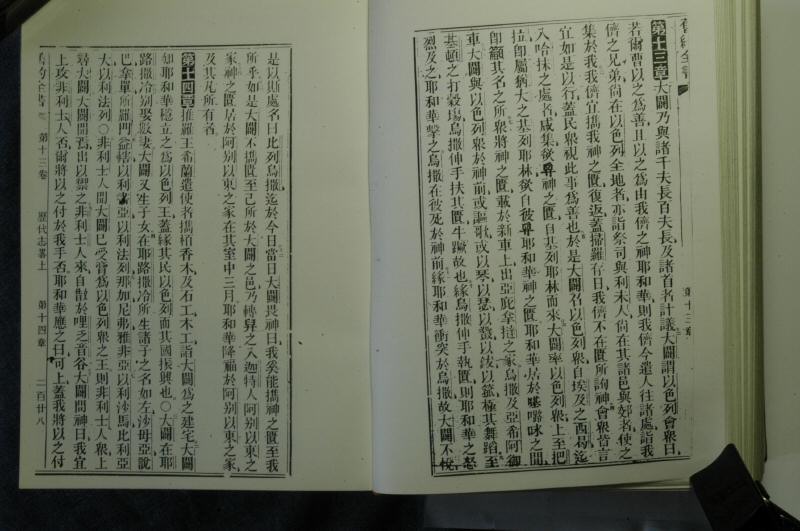 舊約全書
第十三章大闢乃與諸千夫長百夫長及諸首名計議大闢謂以色列會衆曰
若爾曹以之為善且以之為由我儕之神耶和華則我儕今遣人往諸處詣我
儕之兄弟尚在以色列全地者亦詣祭司與利未人尚在其諸邑與郊者使之
集於我我儕宜攜我神之匱復返蓋掃羅存日我儕不在匱所詢神會衆皆言
宜如是以行蓋民衆視此事為善也於是大闢召以色列衆自埃及之西曷迄
入哈抹之處者咸集欲舁神之匱自基列耶林而來大闢率以色列衆上至把
拉即屬猶大之基列耶林欲自彼舁耶和華神之匱耶和華居於𠼻𡀔咏之間
即籲其名之所衆將神之匱載於新車上出亞庇拿撻之家烏撒及亞希阿御
車大闢與以色列衆於神前或謳歌或以琴以瑟以鼗以鈸以號極其舞蹈至
基頓之打穀場烏撒伸手扶其匱牛蹶故也緣烏撒伸手執匱則耶和華之怒
烈及之耶和華擊之烏撒在彼死於神前緣耶和華衝突於烏撒故大闢不悅
第十三章
是以斯處名曰比列烏撒迄於今日當日大闢畏神曰我奚能攜神之匱至我
所乎如是大闢不攜匱至己所於大闢之邑乃轉舁之入迦特人阿別以東之
家神之匱居於阿別以東之家在其室中三月耶和華降福於阿別以東之家
及其凡所有者
第十四章推羅王希蘭遣使者攜栢香木及石工木工詣大闢為之建宅大闢
知耶和華穩立之為以色列王蓋緣其民以色列而其國振興也○大闢在耶
路撒冷別娶數妻大闢又生子女在耶路撒冷所生諸子之名如左沙毋亞說
巴拿單所羅門益轄以利書亞以利法列那加尼弗雅非亞以利沙馬比利亞
大以利法列○非利士人聞大闢已受膏為以色列衆之王則非利士人衆上
尋大闢大闢聞焉出以禦之非利士人來自散於哩乏音谷大闢問神曰我宜
上攻非利士人否爾將以之付於我手否耶和華應之曰可上蓋我將以之付
舊約全書 第十三卷 歷代志畧上 第十四章 二百廿八